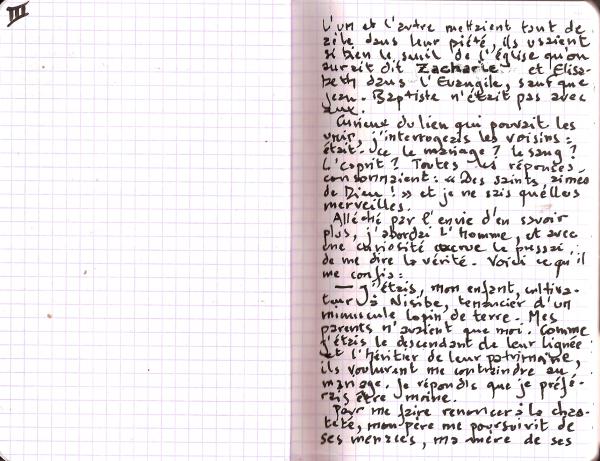 III
L'un et l'autre mettaient tant de
zèle dans leur piété, ils usaient
si bien le seuil de l'église qu'on
aurait dit Zacharie et Elisa-
beth dans l'Evangile, sauf que
Jean-Baptiste n'était pas avec
eux.
Curieux du lien qui pouvait les
unir, j'interrogeais les voisins :
était-ce le mariage ? le sang ?
L'esprit ? Toutes les réponses
consonnaient : « Des saints, aimés
de Dieu ! » et je ne sais quelles
merveilles.
Alléché par l'envie d'en savoir
plus, j'abordai l'homme, et avec
une curiosité accrue le pressai
de me dire la vérité. Voici ce qu'il
me confia :
— J'étais, mon enfant, cultiva-
teur à Nisibe, tenancier d'un
minuscule lopin de terre. Mes
parents n'avaient que moi. Comme
j'étais le descendant de leur lignée
et l'héritier de leur patrimoine,
ils voulurent me contraindre au
mariage. Je répondis que je préfé-
rais être moine.
Pour me faire renoncer à la chas-
teté, mon père me poursuivit de
ses menaces, ma mère de ses